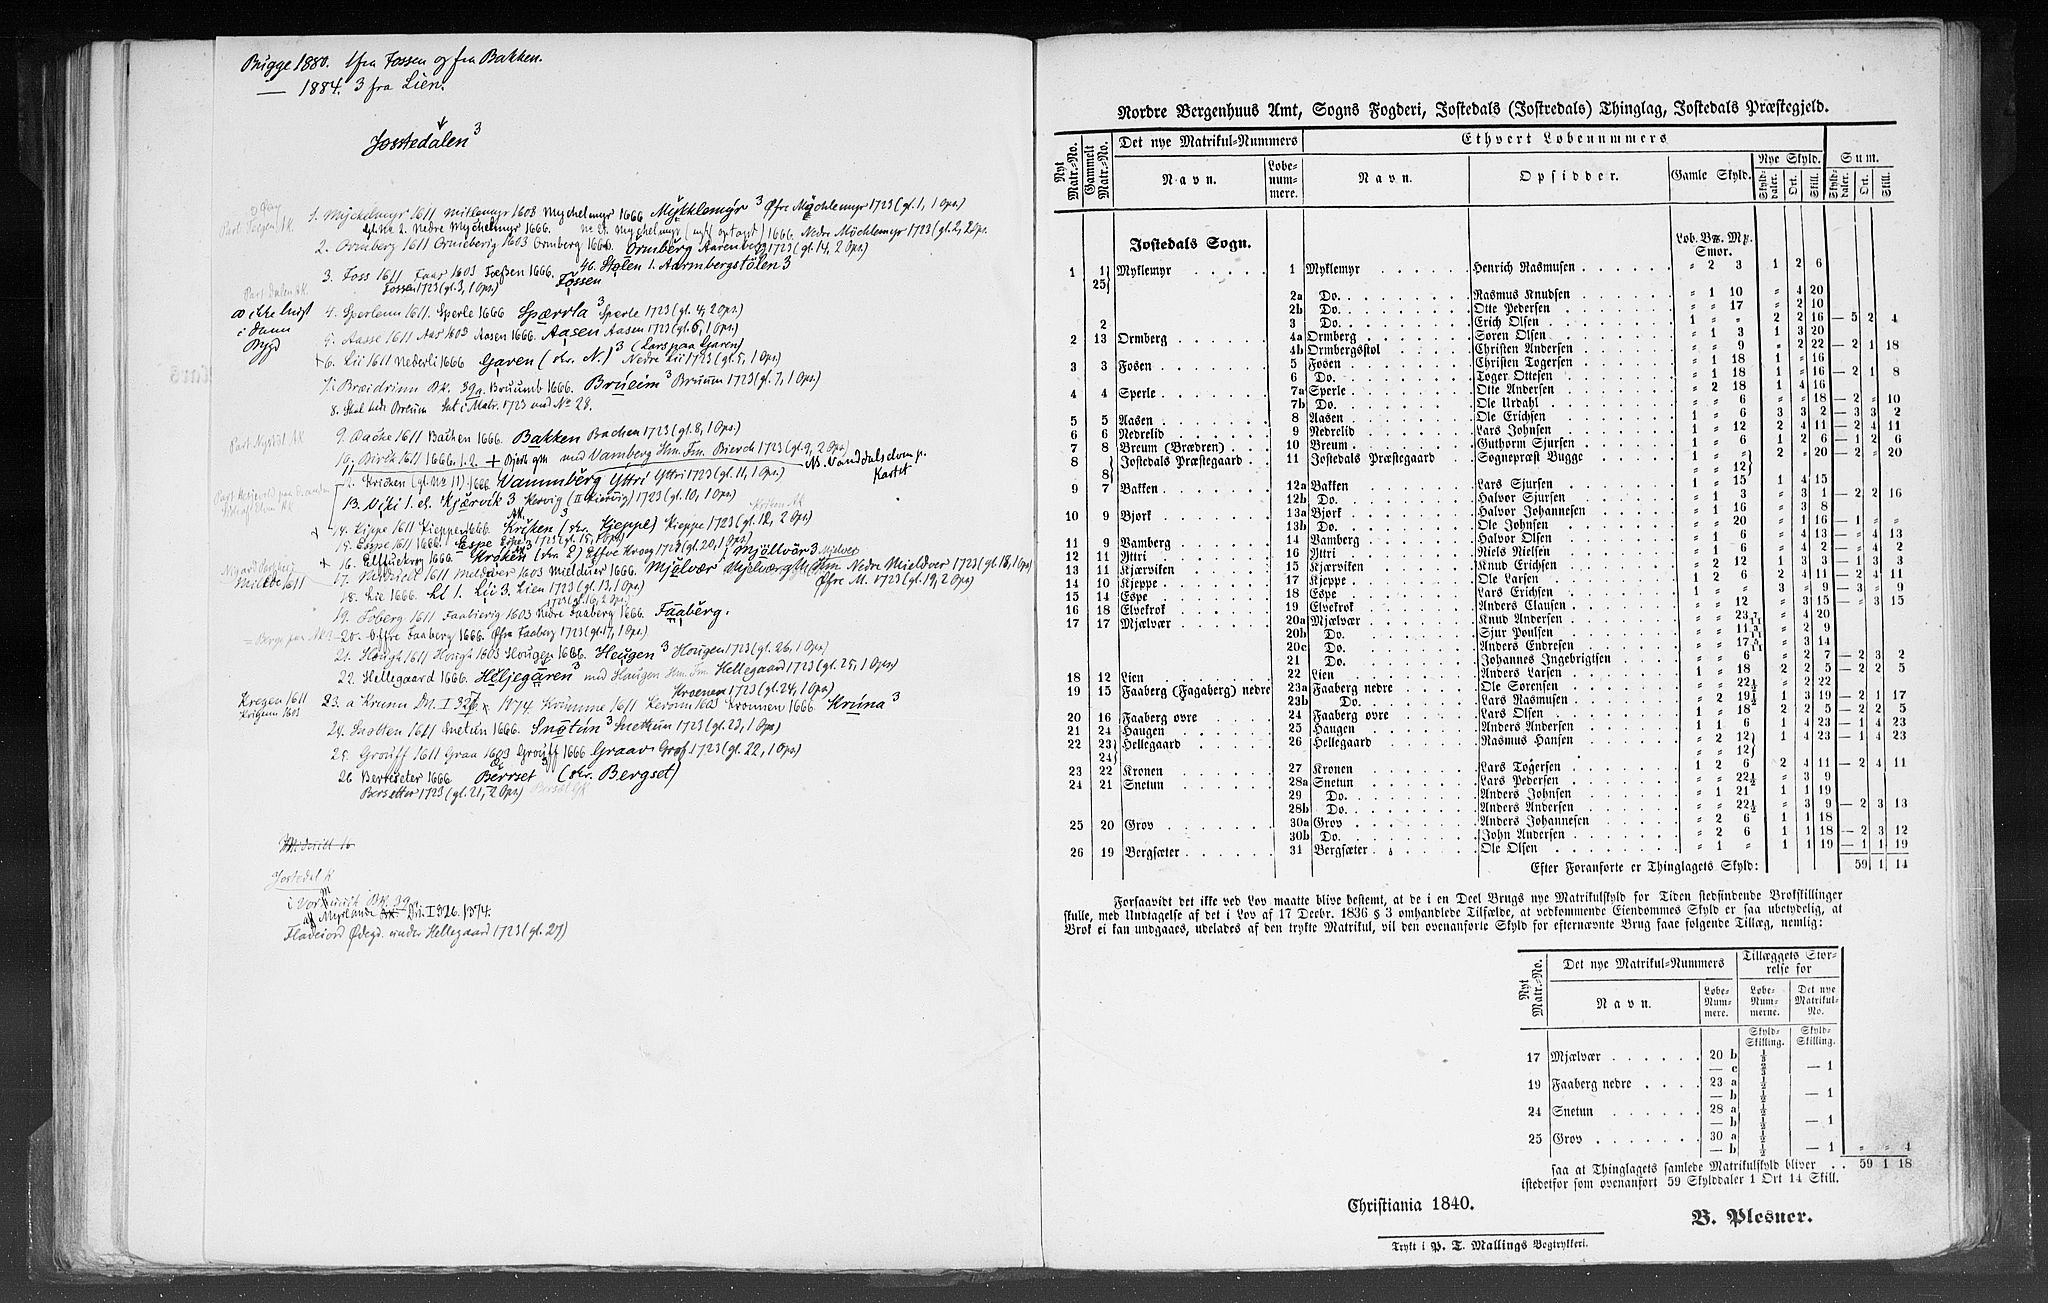 Bugge 1880. 1 fra Fossen og fra Bakken.
— 1884. 3 fra Lien.
Jostedalen 3
1. Mychelmyr 1611 Mitlemyr 1603 Mychelmyr 1666 Myklemyr 3 Øfre Mychlemyr 1723 (gl. 1, 1 Ops)
gl. No 2. Nedre Mychelmyr 1666. Nedre Mychlemyr 1723 (gl. 2, 2 Ops.
2. Ormberg 1611 Ormeberig 1603 Ormberg 1666. Ormberg Aarenberg 1723 (gl. 14, 2 Ops)
3. Foss 1611 1603 Foeßen 1666. 46. Stølen 1. Aarmbergstølen 3
Fossen 1723 (gl. 3, 1 Ops) Fossen
∞ ikke brugt
i denne
Bygd
4. Sperlenn 1611. Sperle 1666 Spærrla 3 Sperle 1723 (gl. 4, 2 Ops)
5. Aasse 1611 Aas 1603 Aasen 1666. Aasen Aasen 1723 (gl. 6, 1 Ops)
6. Lii 1611 Nederli 1666 Garen (skr. N.) 3 (Lars paa Garen) Nedre Lii 1723 (gl. 5, 1 Ops)
7. Breidrinn Bk. 39a. Bruumb 1666. Brueim 3 Bruum 1723 (gl. 7, 1 Ops)
8. Skal hede Breum Sat i Matr. 1723 med No 28.
9. Bache 1611 Bachen 1666. Bakken Bachen 1723 (gl. 8, 1 Ops.)
10. Birch 1611 1666. 1. 2. + Bjørk gm med Vamberg Hm. Fm. Bierch 1723 (gl. 9, 2 Ops)
NB. Vanddalselven p. Kartet
12. Krichen (gl. No 11) 1666. Vammberg Yttri Yttri 1723 (gl. 11, 1 Ops)
13. Viki 1. el. Kjærvik 3 Kervig (Kiervig) 1723 (gl. 10, 1 Ops)
14. Kippe 1611 Kieppen 1666. Kriken 3 (skr. Kjeppe) Kieppe 1723 (gl. 12, 2 Ops)
15. Espe 1611 1666. Espe Espe 1723 (gl. 15, 1 Ops)
16. Elffuekrog 1666. Kroken 3 (dra 2) Elffve Kroeg 1723 (gl. 20, 1 Ops)
Mjøllvær 3
Mielve 1611
17. 1611 Meldver 1603 Mielduer 1666. Mjølvær Mjelvær gm (Hm Nedre Mieldver 1723 (gl. 18, 1 Ops)
Øfre M. 1723 (gl. 19, 2 Ops)
18. Lie 1666. Li 1. Lii 3. Lien 1723 (gl. 13, 1 Ops)
19. Foberg 1611 Faabierig 1603 Nedre Faaberg 1666. 1723 (gl. 16, 2 Ops) Faaberg.
20. Øffre Faaberg 1666. Øfre Faaberg 1723 (gl. 17, 1 Ops)
21. Hough 1611 Hough 1603 Hougen 1666. Heugen 3 Hougen 1723 (gl. 26, 1 Ops)
22. Hellegaard 1666. Heljegaren 3 med Haugen Hm. Fm. Hellegaard 1723 (gl. 25, 1 Ops)
Kregen 1611
1603
23. a Krunu Dn. I 326. 1374. Krømme 1611 1603 Kronnen 1666 Kruna 3
Kroenen 1723 (gl. 24, 1 Ops)
24. Snotten 1611 Snetun 1666. Snøtun 3 Snettun 1723 (gl. 23, 1 Ops)
25. Grouff 1611 Graa 1603 Grouff 1666 Graav Grof 1723 (gl. 22, 1 Ops)
26 Berreseter 1666 Berrset (skr. Bergset)
Bersetter 1723 (gl. 21, 2 Ops)
Jostedal K
af Myrlande Dn. I 326. 1374.
Fladeiord Ødegd. under Hellegaard 1723 (gl. 27)
Nordre Bergenhuus Amt, Sogns Fogderi, Jostedals (Jostredals) Thinglag, Jostedals Præstegjeld.
Nyt Matr.-No. Gammelt Matr.-No. Det nye Matrikul-Nummers Ethvert Løbenummers
Navn. Løbenummere. Navn. Opsidder. Gamle Skyld. Nye Skyld. Sum.
Skylddaler. Ort. Skill. Skylddaler. Ort. Skill.
Jostedals Sogn. Løb. Bpd. Mp.
Smør.
1 1 Myklemyr 1 Myklemyr Henrich Rasmusen " 2 3 1 2 6
25
2a Do. Rasmus Knudsen " 1 10 " 4 20
2b Do. Otte Pedersen " " 17 " 2 10
2 3 Do. Erich Olsen 1 " " 2 2 16 — 5 2 4
2 13 Ormberg 4a Ormberg Søren Olsen " 1 3 1 3 20
4b Ormbergsstøl Christen Andersen " " 9 " 2 22 — 2 1 18
3 3 Fosen 5 Fosen Christen Togersen " 1 18 1 " 16
6 Do. Toger Ottesen " 1 18 1 " 16 — 2 1 8
4 4 Sperle 7a Sperle Otte Andersen " 2 18 1 4 16
7b Do. Ole Urdahl " " 6 " " 18 — 2 " 10
5 5 Aasen 8 Aasen Ole Erichsen 1 " 6 3 3 2 — 3 3 2
6 6 Nedrelid 9 Nedrelid Lars Johnsen " " 12 2 4 11 — 2 4 11
7 8 Breum (Brædren) 10 Breum Guthorm Sjursen 1 " 6 1 2 6 — 1 2 6
8 Jostedals Præstegaard 11 Jostedals Præstegaard Sognepræst Bugge 1 " " 2 " 20 — 2 " 20
8 " " 12
9 7 Bakken 12a Bakken Lars Sjursen " 1 15 1 4 15
12b Do. Halvor Sjursen " 1 3 " 3 1 — 2 2 16
10 9 Bjørk 13a Bjørk Halvor Johannesen " 1 16 " 3 8
13b Do. Ole Johnsen " " 20 " 1 16 — 1 " "
11 9 Vamberg 14 Vamberg Halvor Olsen " 1 6 " 4 13 — " 4 13
12 11 Yttri 16 Yttri Niels Nielsen " 1 6 " 4 2 — " 4 2
13 11 Kjærviken 15 Kjærviken Knud Erichsen " 2 12 1 3 3 — 1 3 3
14 10 Kjeppe 17 Kjeppe Ole Larsen 1 2 6 2 4 11 — 2 4 11
15 14 Espe 18 Espe Lars Erichsen 1 " " 3 " 9 — 3 " 9
16 18 Elvekrok 19 Elvekrok Anders Clausen " " 12 " 3 15 — " 3 15
17 17 Mjælvær 20a Mjælvær Knud Andersen " " 23 7/11 " 4 20
20b Do. Sjur Poulsen " " 11 3/11 " 2 9
20c Do. Anders Endresen " " 17 3 14
21 Do. Johannes Ingebrigtsen " " 6 " 2 7 — 2 3 2
18 12 Lien 22 Lien Anders Larsen " 1 18 2 2 5 — 2 2 5
19 15 Faaberg (Fagaberg) nedre 23a Faaberg nedre Ole Sørensen " " 22½ " 2 22
23b Do. Lars Rasmusen " 2 19½ 1 3 19 — 2 1 17
20 16 Faaberg øvre 24 Faaberg øvre Lars Olsen " 1 18 2 2 5 — 2 2 5
21 24 Haugen 25 Haugen Anders Andersen 1 1 6 1 4 23 — 1 4 23
22 23 Hellegaard 26 Hellegaard Rasmus Hansen " 2 12 1 4 23 — 1 4 23
24 " " 12
23 22 Kronen 27 Kronen Lars Togersen 1 2 6 2 4 11 — 2 4 11
24 21 Snetun 28a Snetun Lars Pedersen " " 22½ " 3 9
29 Do. Anders Johnsen " 1 21 1 1 19
28b Do. Anders Andersen " " 22½ " 3 9 — 2 3 13
25 20 Grov 30a Grov Anders Johannesen " 2 6 1 1 18
30b Do. John Andersen " 2 6 1 1 18 — 2 3 12
26 19 Bergsæter 31 Bergsæter Ole Olsen " 1 " 1 1 19 — 1 1 19
Efter Foranførte er Thinglagets Skyld: 59 1 14
Forsaavidt det ikke ved Lov maatte blive bestemt, at de i en Deel Brugs nye Matrikulskyld for Tiden stedfindende Brøkstillinger
skulle, med Undtagelse af det i Lov af 17 Decbr. 1836 § 3 omhandlede Tilfælde, at vedkommende Eiendommes Skyld er saa ubetydelig, at
Brøk ei kan undgaaes, udelades af den trykte Matrikul, vil den ovenanførte Skyld for efternævnte Brug faae følgende Tillæg, nemlig:
Nyt Matr.-No. Det nye Matrikul-Nummers Tillæggets Størrelse for
Navn. Løbe-Nummere. Løbe-Nummerne. Det nye Matrikul-No.
Skyld-Skilling. Skyld-Skilling.
17 Mjælvær 20 b ⅓
— c ⅔ — 1
19 Faaberg nedre 23 a ½
— b ½ — 1
24 Snetun 28 a ½
— b ½ — 1
25 Grov 30 a ½
— b ½ — 1 " " 4
saa at Thinglagets samlede Matrikulskyld bliver . . 59 1 18
istedetfor som ovenanført 59 Skylddaler 1 Ort 14 Skill.
Christiania 1840.
B. Plesner.
Trykt i P. T. Mallings Bogtrykkeri.